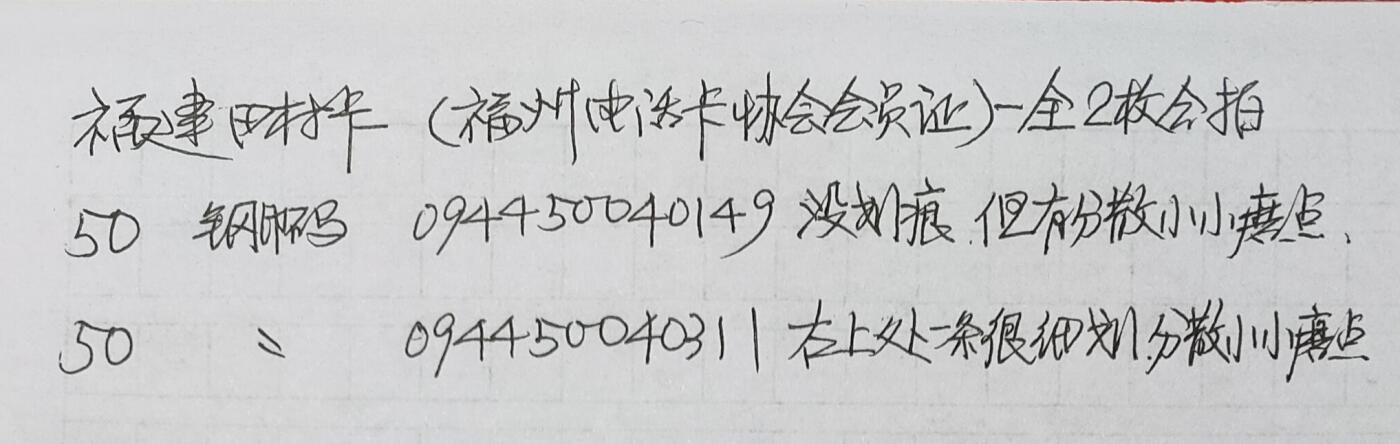 福建田村卡 (福州电话卡协会会员证)一全2枚合拍
50 钢印码 094450040149 没划痕.但有分散小小磨点.
50 〃 094450040311 右上处一条很细划.分散小小磨点